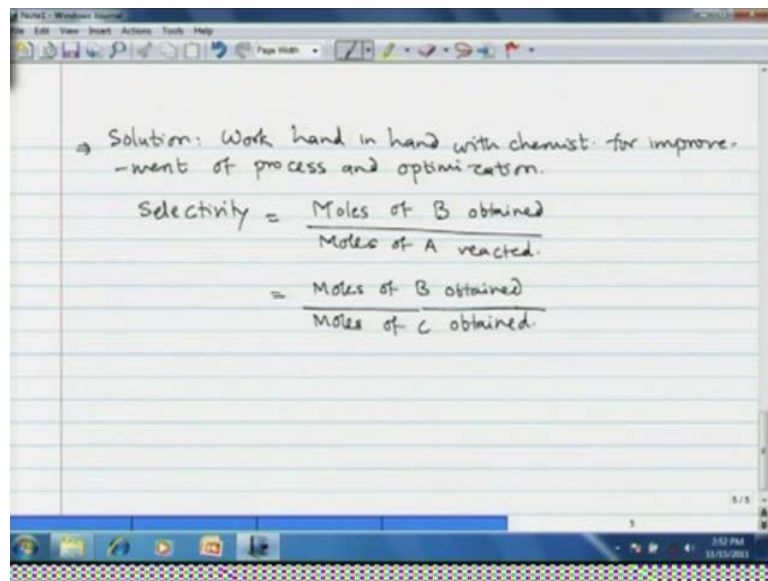 Note1 - Windows Journal
File Edit View Insert Actions Tools Help
Page Width
⇒ Solution: Work hand in hand with chemist. for improve-
-ment of process and optimization.
Selectivity = Moles of B obtained
Moles of A reacted.
= Moles of B obtained
Moles of C obtained.
5/5
5
2:52 PM
11/15/2011